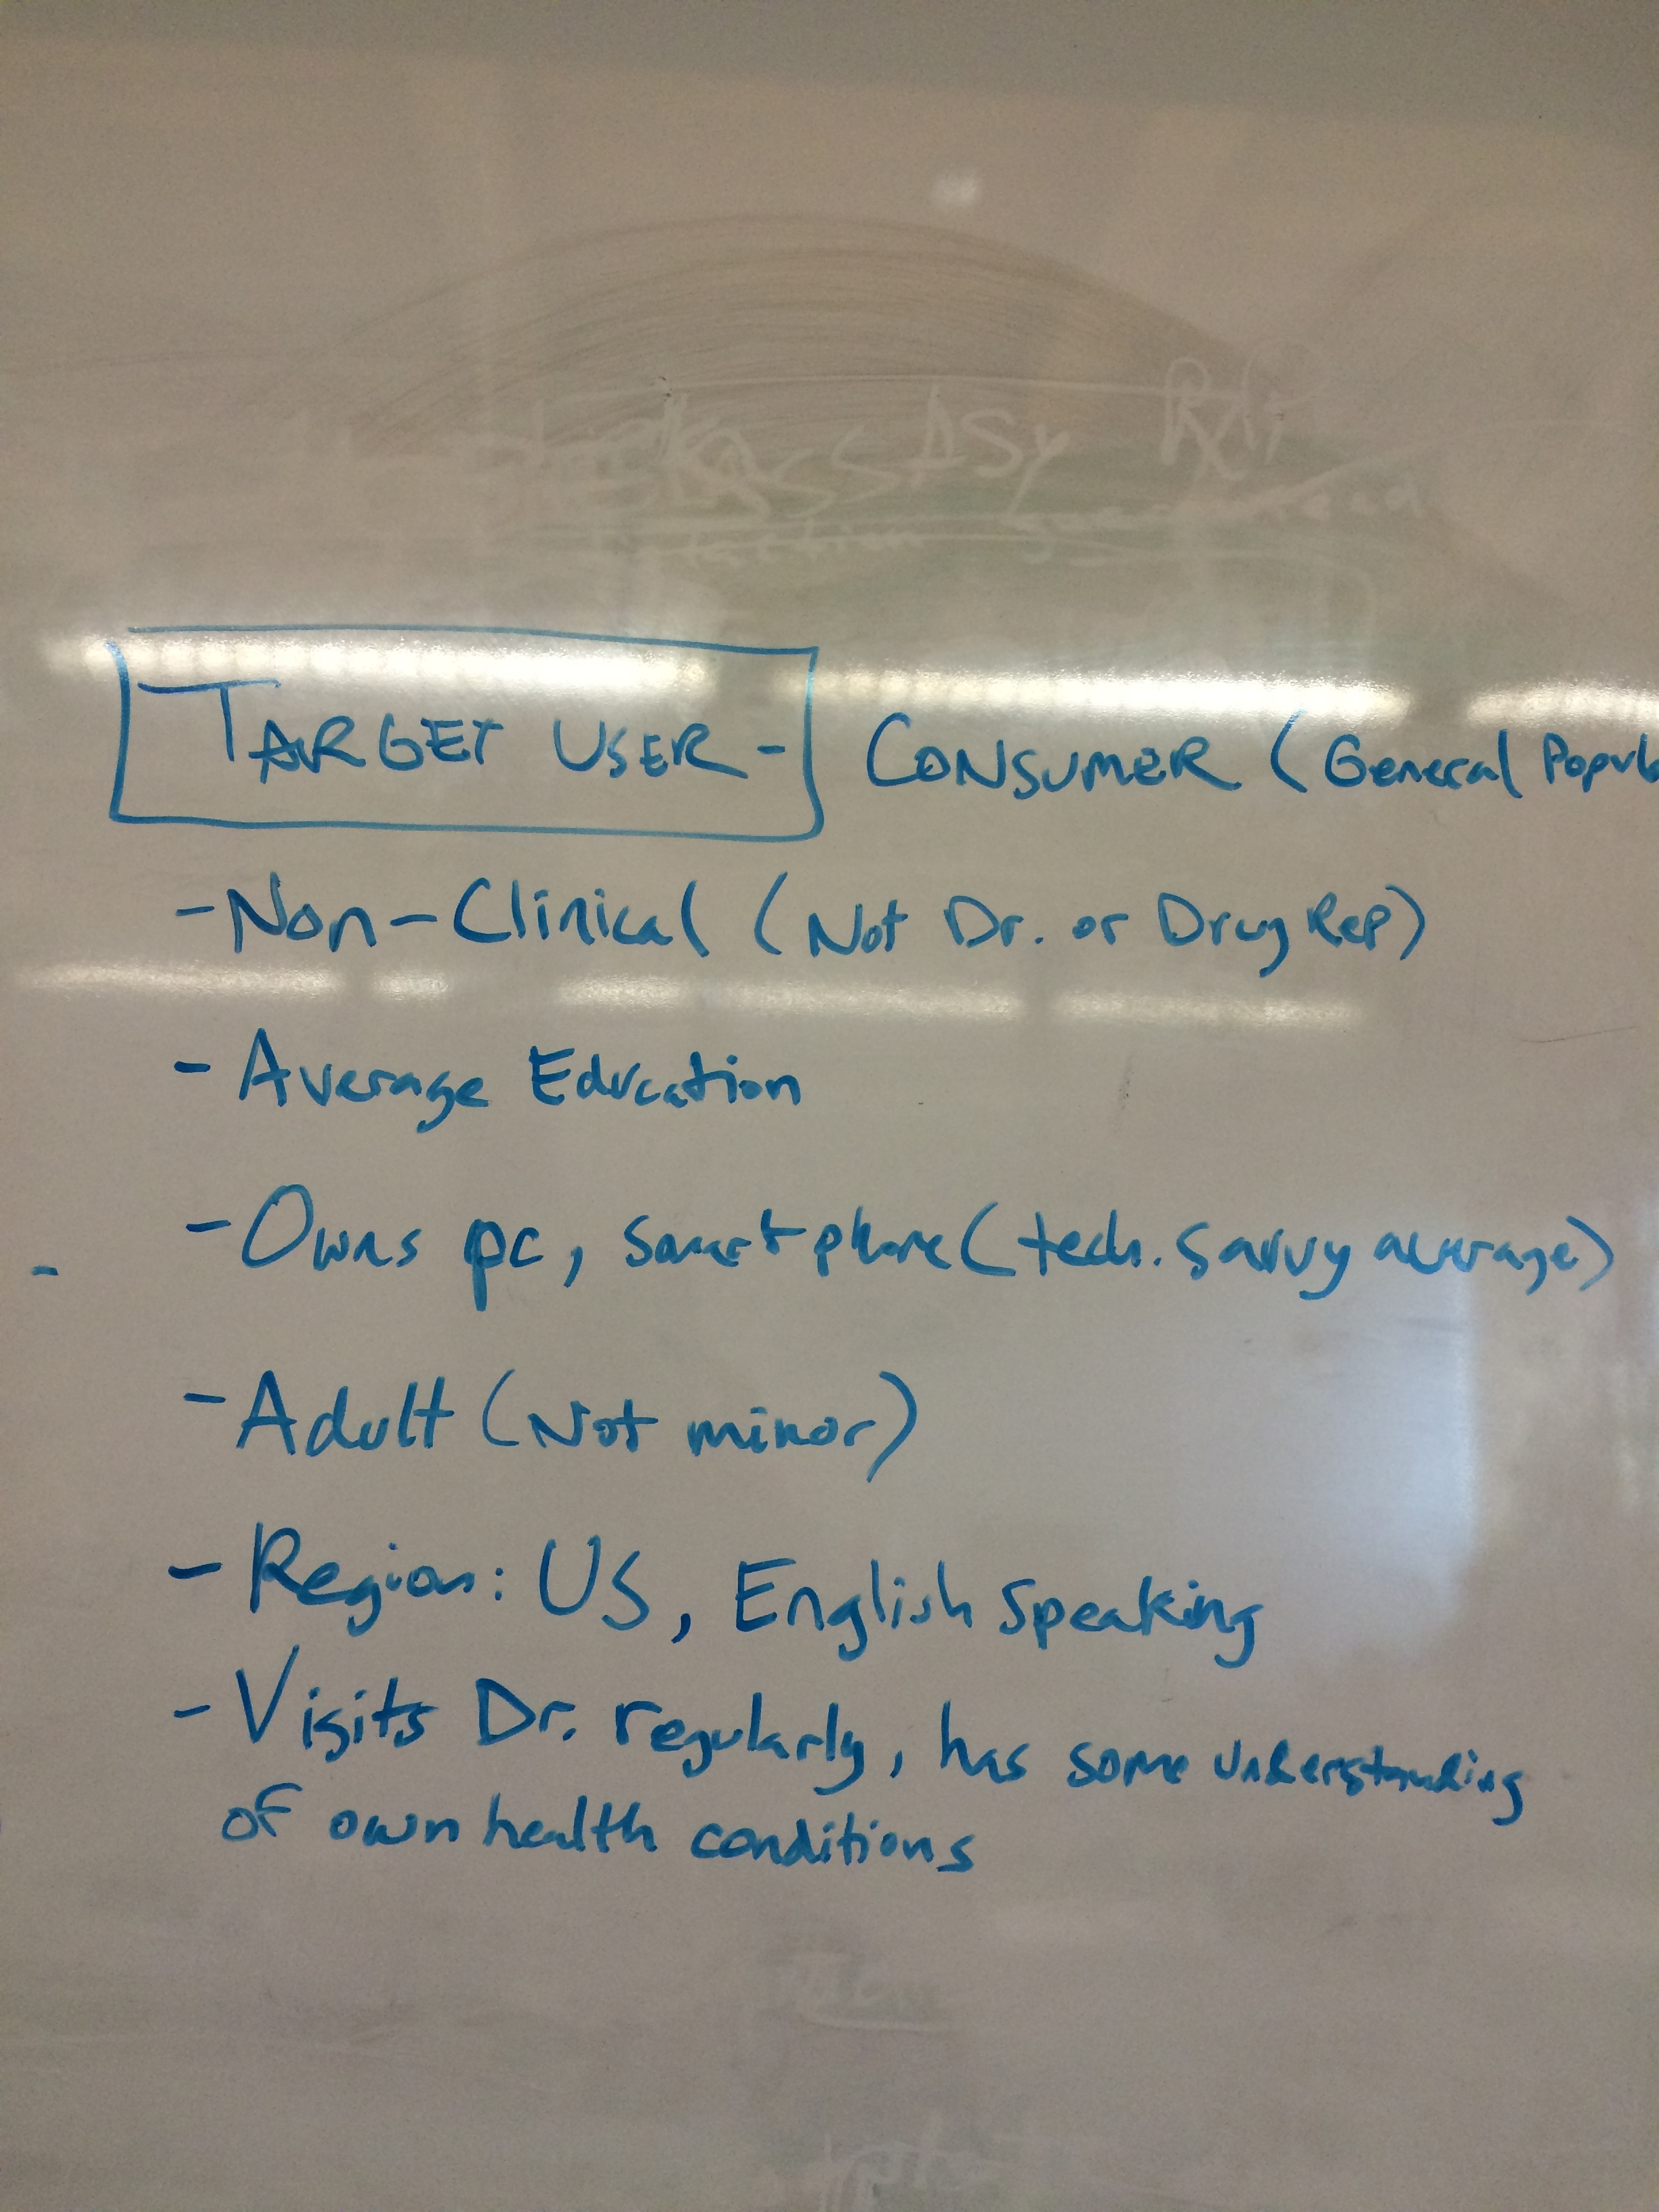 TARGET USER - CONSUMER (General Popul
- Non-Clinical (Not Dr. or Drug Rep)
- Average Education
- Owns pc, smart phone (tech. savvy average)
- Adult (Not minor)
- Region: US, English speaking
- Visits Dr. regularly, has some understanding
of own health conditions